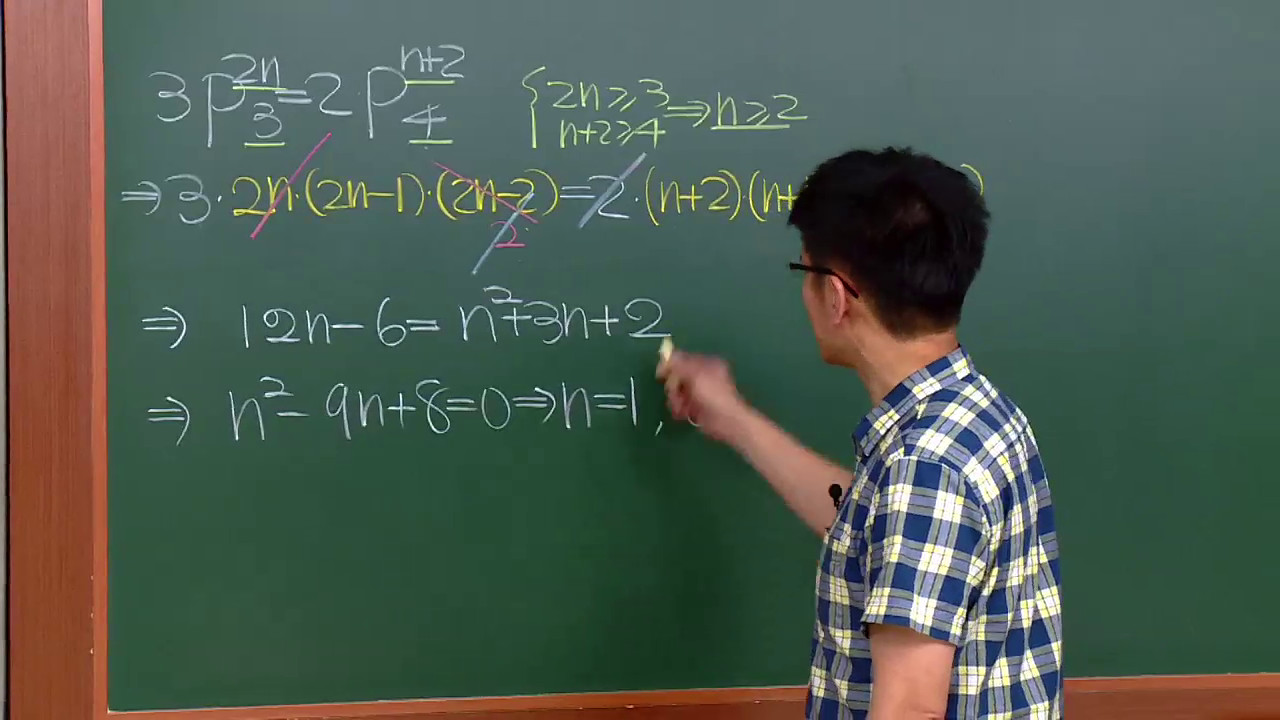 3P^{2n}_{3}=2P^{n+2}_{4} { 2n≥3 n+2≥4 ⇒ n≥2
⇒ 3·2n·(2n-1)·(2n-2)=2·(n+2)(n+
2
⇒ 12n-6=n²+3n+2
⇒ n²-9n+8=0⇒n=1,